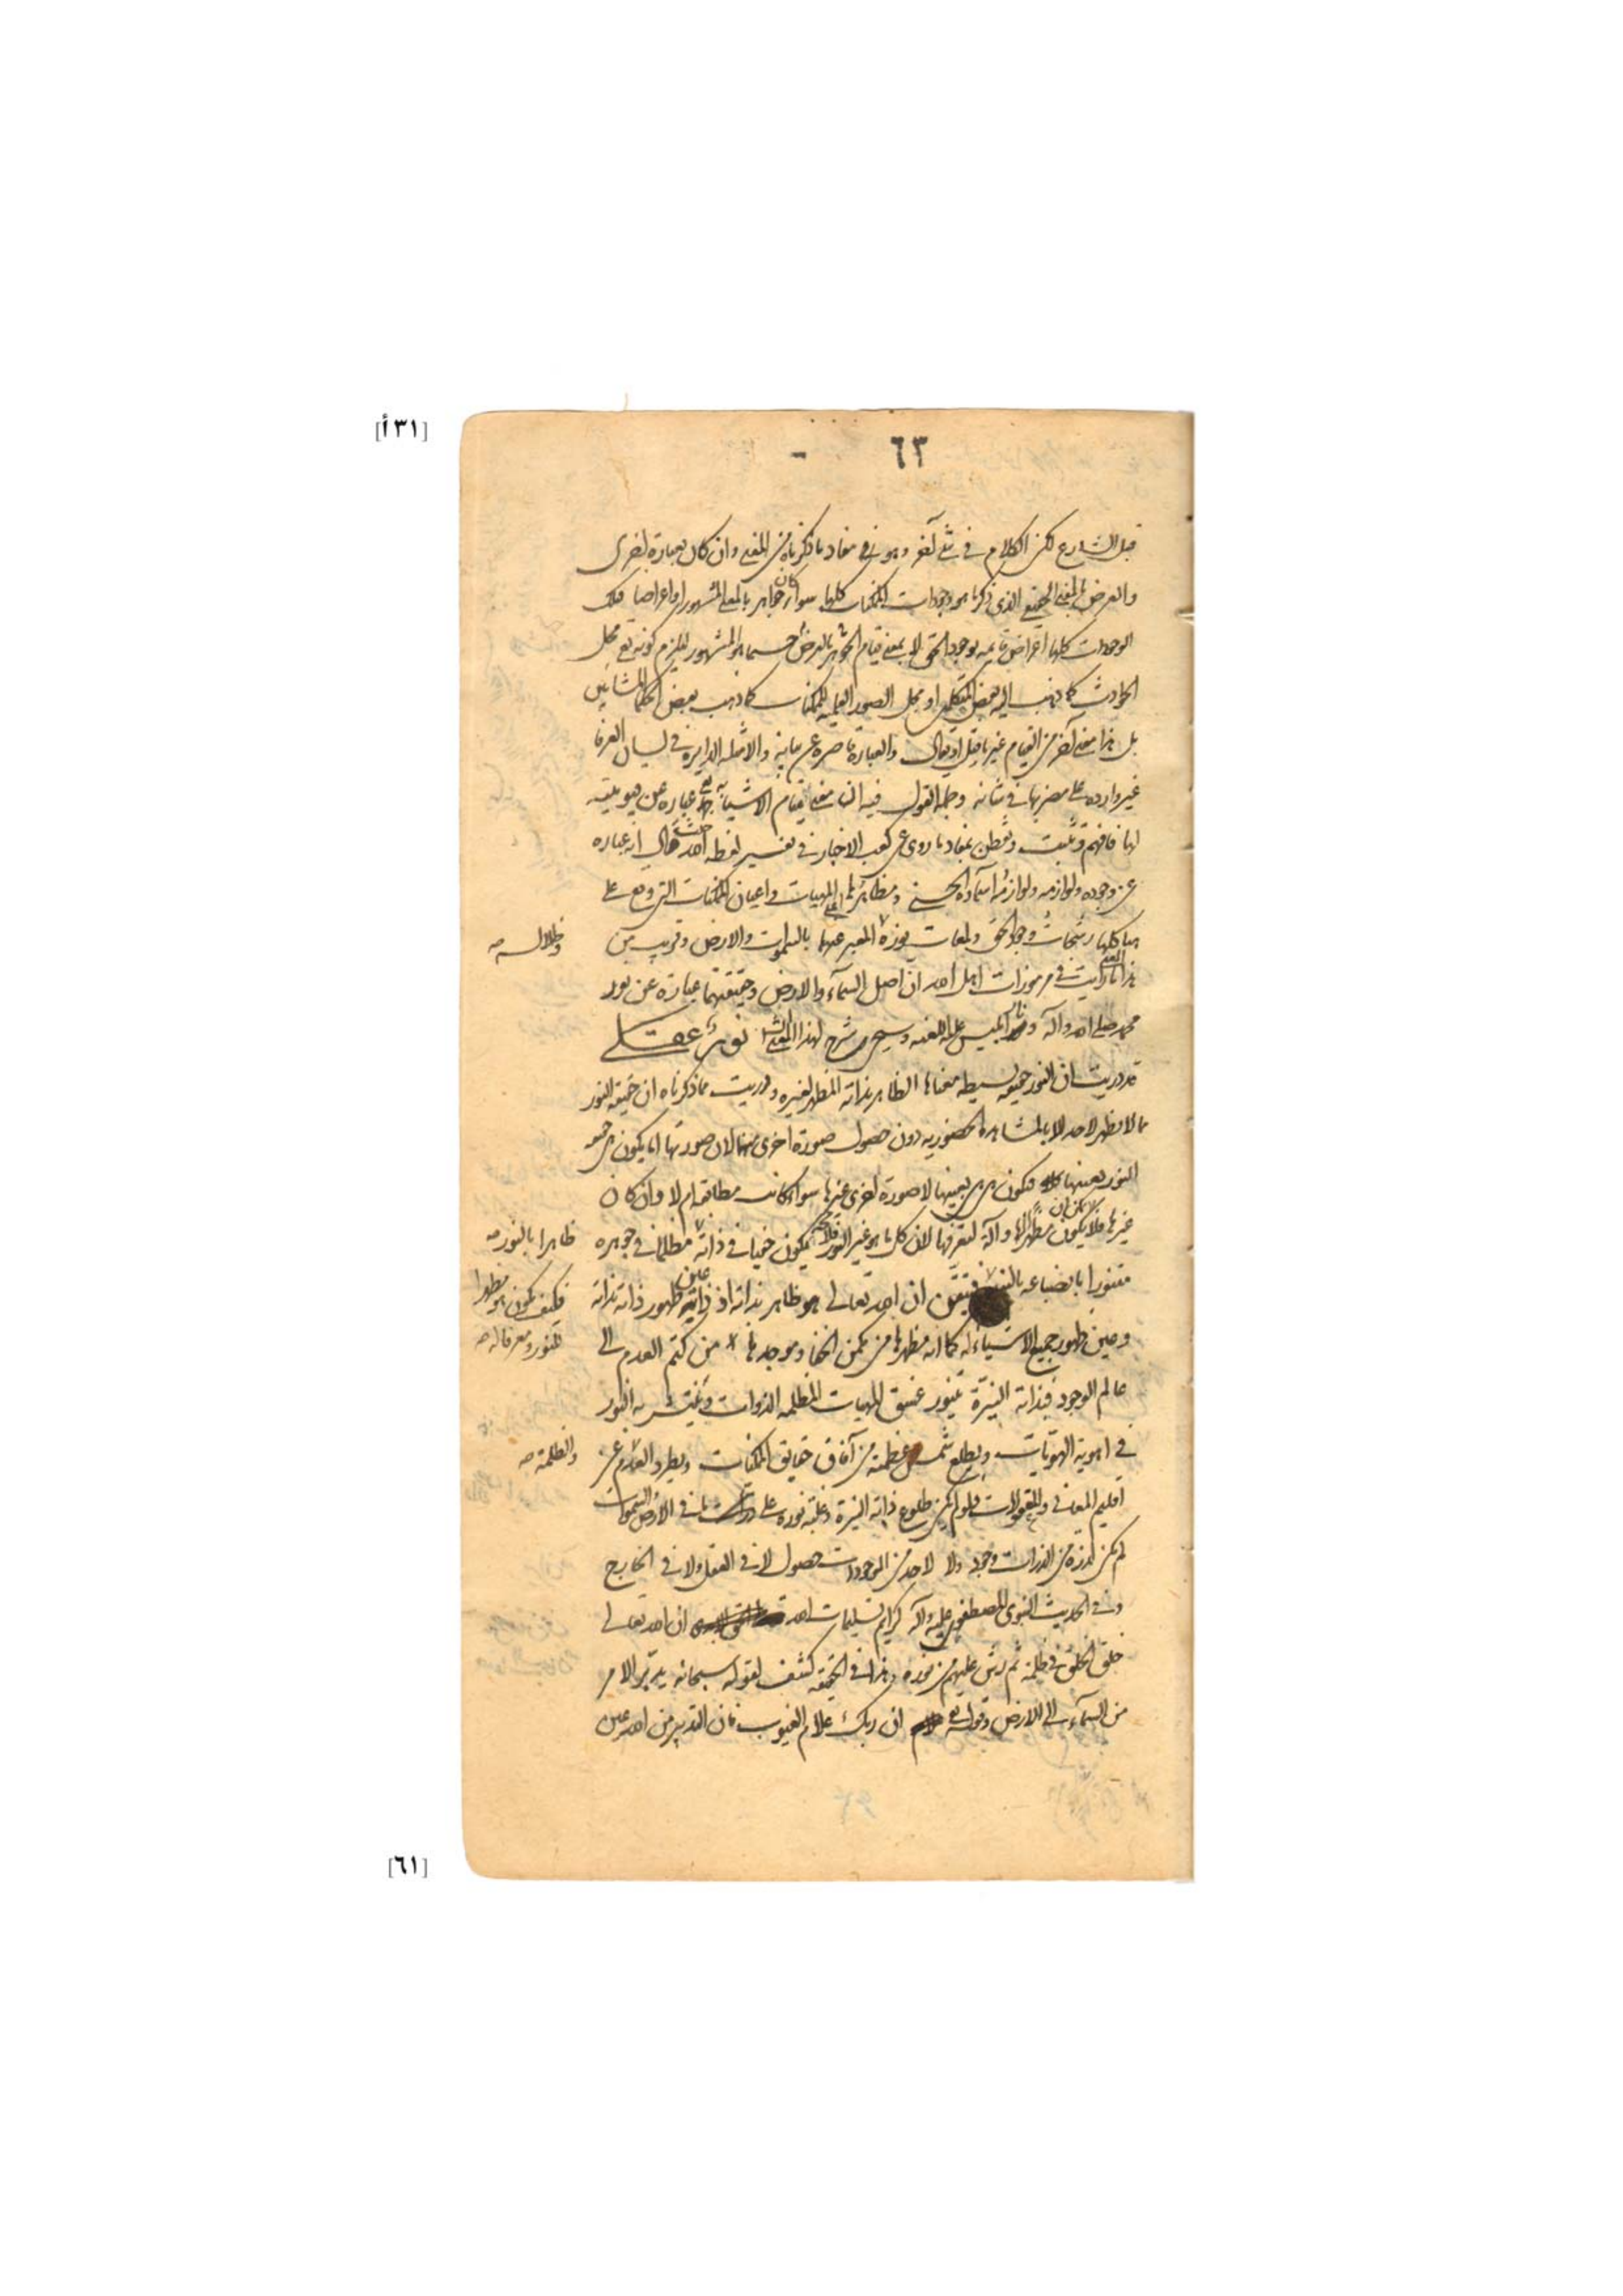 [٣١أ]
٦٣
قبل الشارع لكن الكلام في شئ آخر وهو في مفاد ما ذكرناه من المعنى وان كان بعبارة اخرى
والعرض بالمعنى الذي ذكرنا هو وجودات الممكنات كلها سواء كان جواهر بالمعنى المشهور او اعراضا فتلك
الوجودات كلها اعراض قايمه بوجود الحق لا بمعنى قيام الجوهر بالعرض حسبما هو المشهور ليلزم كونه تع محل
الحوادث كما ذهب اليه بعض المتكلمين او محل الصور العلميه للممكنات كما ذهب بعض الحكما المشائين
بل هذا معنى آخر من القيام غير ما قيل او يقال والعبارة قاصرة عن بيانه والامثله الدايرة في لسان العرفا
غير وارده على مضربها في شانه وجملة القول فيه ان معنى قيام الاشيا به تع عبارة عن قيوميته
لها فافهم وتثبت وتفطن بمفاد ما روى عن كعب الاخبار في تفسير لفظه احد حيث قال انه عباره
عن وجوده ولوازمه ولوازمه اسماؤه الحسنى ومظاهرها اى المهيات واعيان الممكنات التي وقع على
هياكلها رشحات وجود الحق ولمعات نوره المعبر عنها بالسموات والارض وقريب من
وظلاله صه
هذا المعنى ما رايت في مرموزات اهل الله ان اصل السمآء والارض وحقيقتهما عبارة عن نور
محمد صلى الله وآله ونار ابليس عليه اللعنه وسيجى شرح لهذا المعنى انش نور عقلى
قد دريت ان النور حقيقة بسيطه معناها الظاهر بذاته المظهر لغيره ودريت مما ذكرناه ان حقيقة النور
مما لا يظهر لاحد الا بالمشاهدة الحضوريه دون حصول صورة اخرى منها لان صورتها اما يكون هي حقيقة
النور بعينها فتكون هي هي بعينها لا صورة اخرى غيرها سواء كانت مطابقه ام لا وان كان
غيرها فلا يمكن ان يكون مظهرا لها وآلة لتعرفها لان كل ما هو غير النور يكون خفيا في ذاته مظلما في جوهره
ظاهرا بالنور صه
متنورا بانصباغه بالنور فتيقن ان الله تعالى هو ظاهر بذاته اذ ذاته عين ظهور ذاته بذاته
فكيف يكون هو مظهرا
وعين ظهور جميع الاشياء له كما انه مظهرها من مكمن الخفا وموجدها من كتم العدم الى
للنور ومعرفا له صه
عالم الوجود فبذاته النيرة يتنور غسق المهيات المظلمه الذوات وينتشر به النور
في اهوية الهويات ويطلع شمس عظمته من آفاق حقايق الممكنات ويطرد العدم عن
والظلمة صه
اقليم المعاني والمقولات فلو لم يكن طلوع ذاته النيرة وغلبة نوره على ذرات ما في الارض والسموات
لم يكن لذرة من الذرات وجود ولا لاحد من الموجودات حصول لا في العقل ولا في الخارج
وفي الحديث النبوى المصطفوى عليه وآله كرايم تسليمات الله ان الله تعالى
خلق الخلق في ظلمة ثم رش عليهم من نوره وهذا في الحقيقه كشف لقوله سبحانه يدبر الامر
من السمآء الى الارض وقوله تع ان ربك علام الغيوب فان التدبير من الله عين
[٦١]